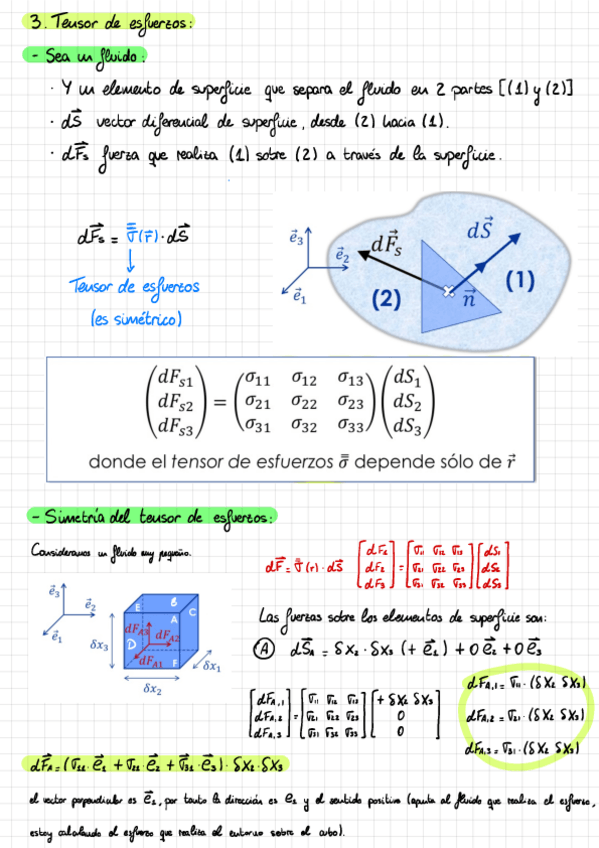 3. Tensor de esfuerzos:
- Sea un fluido:
· Y un elemento de superficie que separa el fluido en 2 partes [(1) y (2)]
· dS⃗ vector diferencial de superficie, desde (2) hacia (1).
· dF⃗s fuerza que realiza (1) sobre (2) a través de la superficie.
dF⃗s = σ̿(r⃗)·dS⃗
Tensor de esfuerzos
(es simétrico)
e⃗3
e⃗2
e⃗1
dF⃗s
dS⃗
(1)
(2)
n⃗
dFs1 σ11 σ12 σ13 dS1
dFs2 = σ21 σ22 σ23 dS2
dFs3 σ31 σ32 σ33 dS3
donde el tensor de esfuerzos σ̿ depende sólo de r⃗
- Simetría del tensor de esfuerzos:
Consideramos un fluido muy pequeño.
dF⃗ = σ̿(r)·dS⃗
e⃗3
e⃗2
e⃗1
E
B
A
C
D
F
dFA3
dFA2
dFA1
δx3
δx2
δx1
Las fuerzas sobre los elementos de superficie son:
(A) dS⃗A = δx2·δx3 (+e⃗1) + 0e⃗2 + 0e⃗3
dFA,1 σ11 σ12 σ13 +δx2 δx3
dFA,2 = σ21 σ22 σ23 0
dFA,3 σ31 σ32 σ33 0
dFA,1 = σ11·(δx2 δx3)
dFA,2 = σ21·(δx2 δx3)
dFA,3 = σ31·(δx2 δx3)
dF⃗A = (σ11·e⃗1 + σ21·e⃗2 + σ31·e⃗3)·δx2·δx3
el vector perpendicular es e⃗1, por tanto la dirección es e1 y el sentido positivo (apunta al fluido que realiza el esfuerzo,
estoy calculando el esfuerzo que realiza el entorno sobre el cubo).